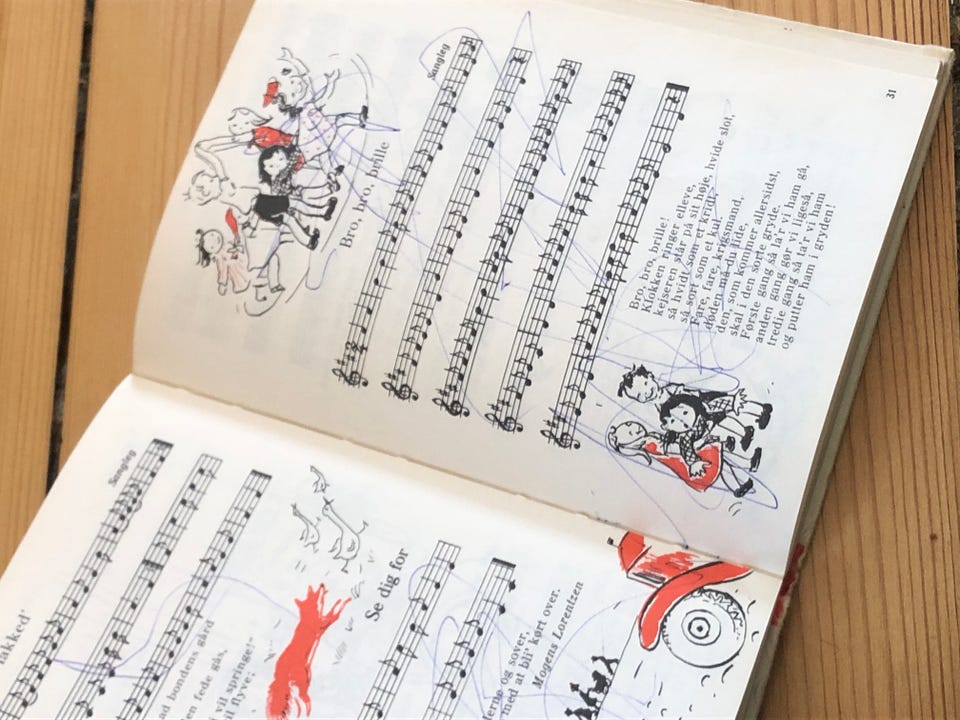 akked'
Sangleg
ad bondens gård
en fede gås,
vil springe!
il flyve;
Se dig for
erne og sover,
med at bli' kørt over.
Mogens Lorentzen
Bro, bro, brille
Sangleg
Bro, bro, brille!
Klokken ringer elleve,
kejseren står på sit høje, hvide slot,
så hvidt som et kridt,
så sort som et kul.
Fare, fare, krigsmand,
døden må du lide,
den, som kommer allersidst,
skal i den sorte gryde.
Første gang så la'r vi ham gå,
anden gang gør vi ligeså,
tredie gang så ta'r vi ham
og putter ham i gryden!
31